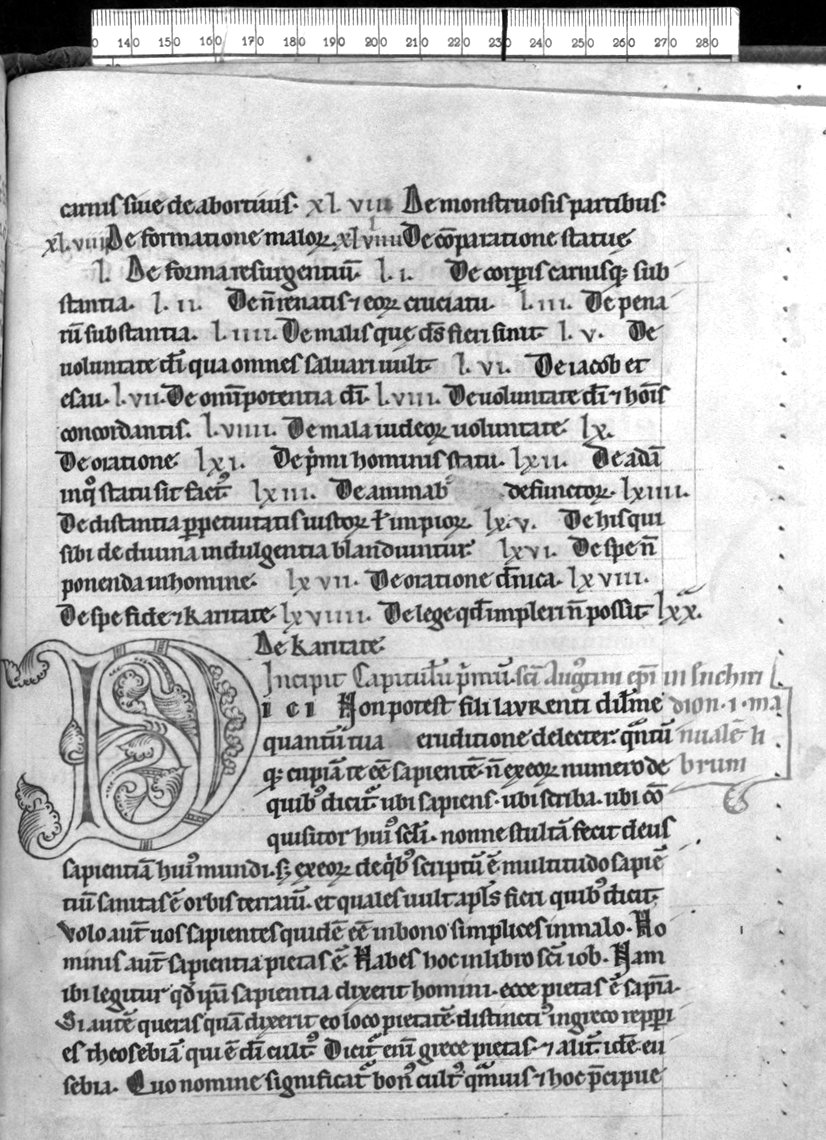 140 150 160 170 180 190 200 210 220 230 240 250 260 270 280
carnis siue de abortiuis. xl.viii De monstruosis partibus.
xl.viiii De formatione maloꝝ. xl viiii De cōparatione statue.
l. De forma resurgentiū. l.i. De corꝑis carnisq; sub
stantia. l.ii. De n̄ renatis ⁊ eoꝝ cruciatu. l.iii. De pena
rū substantia. l.iiii. De malis que d̄s fieri sinit. l.v. De
uoluntate d̄i qua omnes saluari uult. l.vi. De iacob et
esau. l.vii. De om̄ipotentia d̄i. l.viii. De uoluntate d̄i ⁊ hoīs
concordantis. l.viiii. De mala iudeoꝝ uoluntate. lx.
De oratione. lxi. De p̄mi hominis statu. lxii. De adā
inq̊ statu sit fact᷒. lxiii. De animab᷒ defunctoꝝ. lxiiii.
De distantia ꝑpetuitatis iustoꝝ ł impioꝝ. lx.v. De his qui
sibi de diuina indulgentia blandiuntur. lxvi. De spe n̄
ponenda in homine. lxvii. De oratione d̄nica. lxviii.
De spe fide ⁊ karitate. lxviiii. De lege qđ impleri n̄ possit. lxx.
De karitate.
Incipit Capitulū p̄mū. sc̄i Augustini ep̄i in enchiri
DICI Non potest fili laurenti dil̄me dion.i.ma
quantū tua eruditione delecter. q̄ntū nualē li
q; cupiā te ēē sapientē. n̄ ex eoꝝ numero de brum
quib᷒ dicit᷑. ubi sapiens. ubi scriba. ubi cō
quisitor hui᷒ sc̄li. nonne stultā fecit deus
sapientiā hui᷒ mundi. s; ex eoꝝ de q̇b᷒ scriptū ē. multitudo sapiē
tiū sanitas ē orbis terrarū. et quales uult apl̄s fieri quib᷒ dicit.
Volo aūt uos sapientes quidē ēē in bono simplices in malo. Ho
minis aūt sapientia pietas ē. Habes hoc in libro sc̄i iob. Nam
ibi legitur qđ ip̄a sapientia dixerit homini. ecce pietas ē sapīa.
Si autē queras quā dixerit eo loco pietatē. distincti᷒ in greco repꝑi
es theosebiā qui ē d̄i cult᷒. Dicit᷑ eni᷒ grece pietas. ⁊ alit᷑ idē. eu
sebia. Quo nomine significat᷑ bon᷒ cult᷒. q̄muis ⁊ hoc p̄cipue